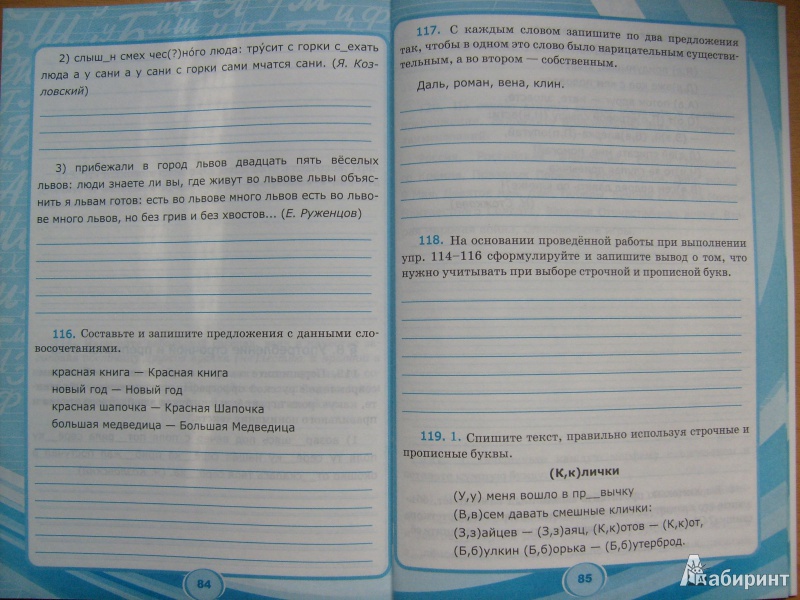 2) слыш_н смех чес(?)но́го люда: тру́сит с горки с_ехать
люда а у сани а у сани с горки сами мчатся сани. (Я. Коз-
ловский)
3) прибежали в город львов двадцать пять весёлых
львов: люди знаете ли вы, где живут во львове львы объяс-
нить я львам готов: есть во львове много львов есть во льво-
ве много львов, но без грив и без хвостов... (Е. Руженцов)
116. Составьте и запишите предложения с данными сло-
восочетаниями.
красная книга — Красная книга
новый год — Новый год
красная шапочка — Красная Шапочка
большая медведица — Большая Медведица
84
117. С каждым словом запишите по два предложения
так, чтобы в одном это слово было нарицательным существи-
тельным, а во втором — собственным.
Даль, роман, вена, клин.
118. На основании проведённой работы при выполнении
упр. 114–116 сформулируйте и запишите вывод о том, что
нужно учитывать при выборе строчной и прописной букв.
119. 1. Спишите текст, правильно используя строчные и
прописные буквы.
(К,к)лички
(У,у) меня вошло в пр__вычку
(В,в)сем давать смешные клички:
(З,з)айцев — (З,з)аяц, (К,к)отов — (К,к)от,
(Б,б)улкин (Б,б)орька — (Б,б)утерброд.
85
Лабиринт